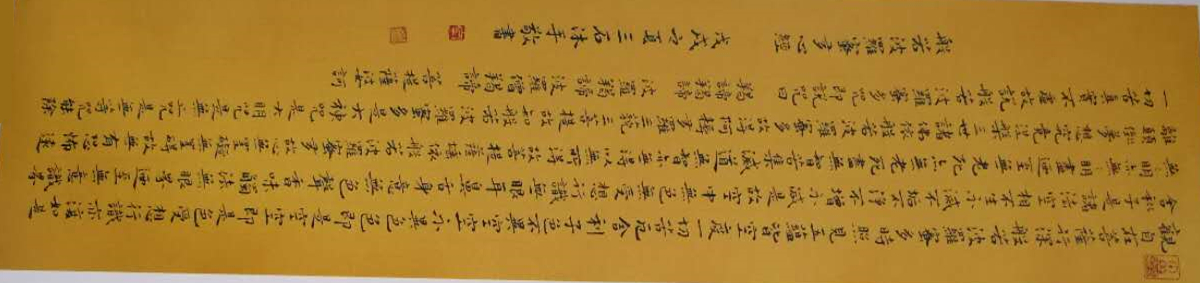 觀自在菩薩行深般若波羅蜜多時照見五蘊皆空度一切苦厄舍利子色不異空空不異色色即是空空即是色受想行識亦復如是
舍利子是諸法空相不生不滅不垢不淨不增不減是故空中無色無受想行識無眼耳鼻舌身意無色聲香味觸法無眼界乃至無意識界
無無明亦無無明盡迺至無老死亦無老死盡無苦集滅道無智亦無得以無所得故菩提薩埵依般若波羅蜜多故心無罣礙無罣礙故無有恐怖遠
離顛倒夢想究竟涅槃三世諸佛依般若波羅蜜多故得阿耨多羅三藐三菩提故知般若波羅蜜多是大神咒是大明咒是無上咒是無等等咒能除
一切苦真實不虛故說般若波羅蜜多咒即說咒曰 揭諦揭諦 波羅揭諦 波羅僧揭諦 菩提薩婆訶
般若波羅蜜多心經 戊戌夏三石沐手敬書